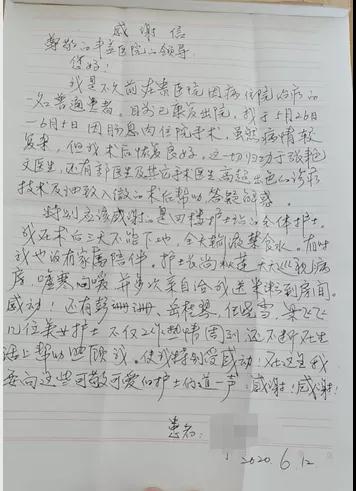 感谢信
尊敬的丰盐医院的领导:
您好!
我是不久前在贵医院因病住院治疗的
一名普通患者。目前已康复出院,我于5月26日
—6月5日因肠息肉住院手术,虽然病情较
复杂,但我术后恢复良好。这一切归功于张艳
文医生,还有郭医生及其它手术医生高超出色的诊疗
技术及细致入微的术后帮助,答疑解惑。
特别应该感谢的是四楼护士站的全体护士。
我在术后三天不能下地,全天输液禁食水。有时
我也没有家属陪伴。护士长尚秋莲天天巡视病
房,嘘寒问暖,并多次亲自给我送米粥到房间。
感动!还有彭珊珊、岳程琴、任雪、梁飞飞
几位美女护士不仅工作热情周到还不断在生
活上帮助照顾我。使我特别受感动!在这里我
要向这些可敬可爱的护士们道一声:感谢!感谢!
患者:
2020.6.12